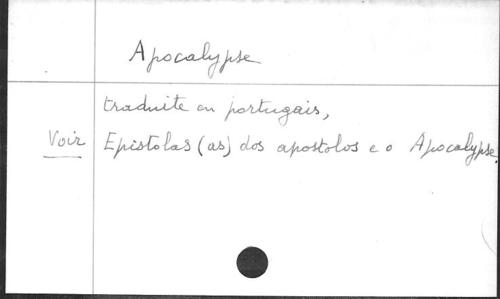 Apocalypse
traduite en portugais,
Voir Epistolas (as) dos apostolos e o Apocalypse.